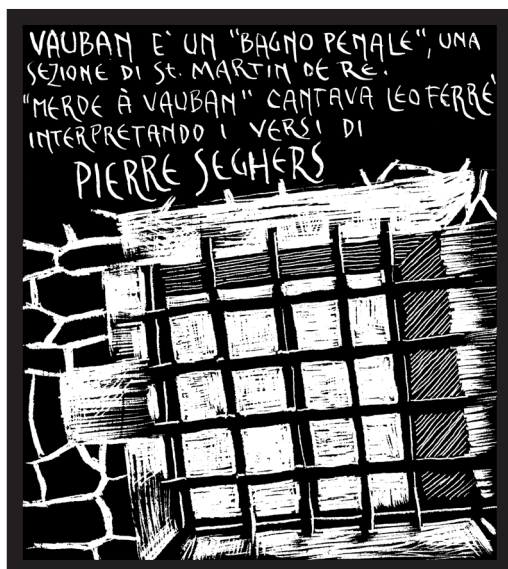 VAUBAN E' UN "BAGNO PENALE", UNA
SEZIONE DI St. MARTIN DE RE.
"MERDE À VAUBAN" CANTAVA LEO FERRE'
INTERPRETANDO I VERSI DI
PIERRE SEGHERS